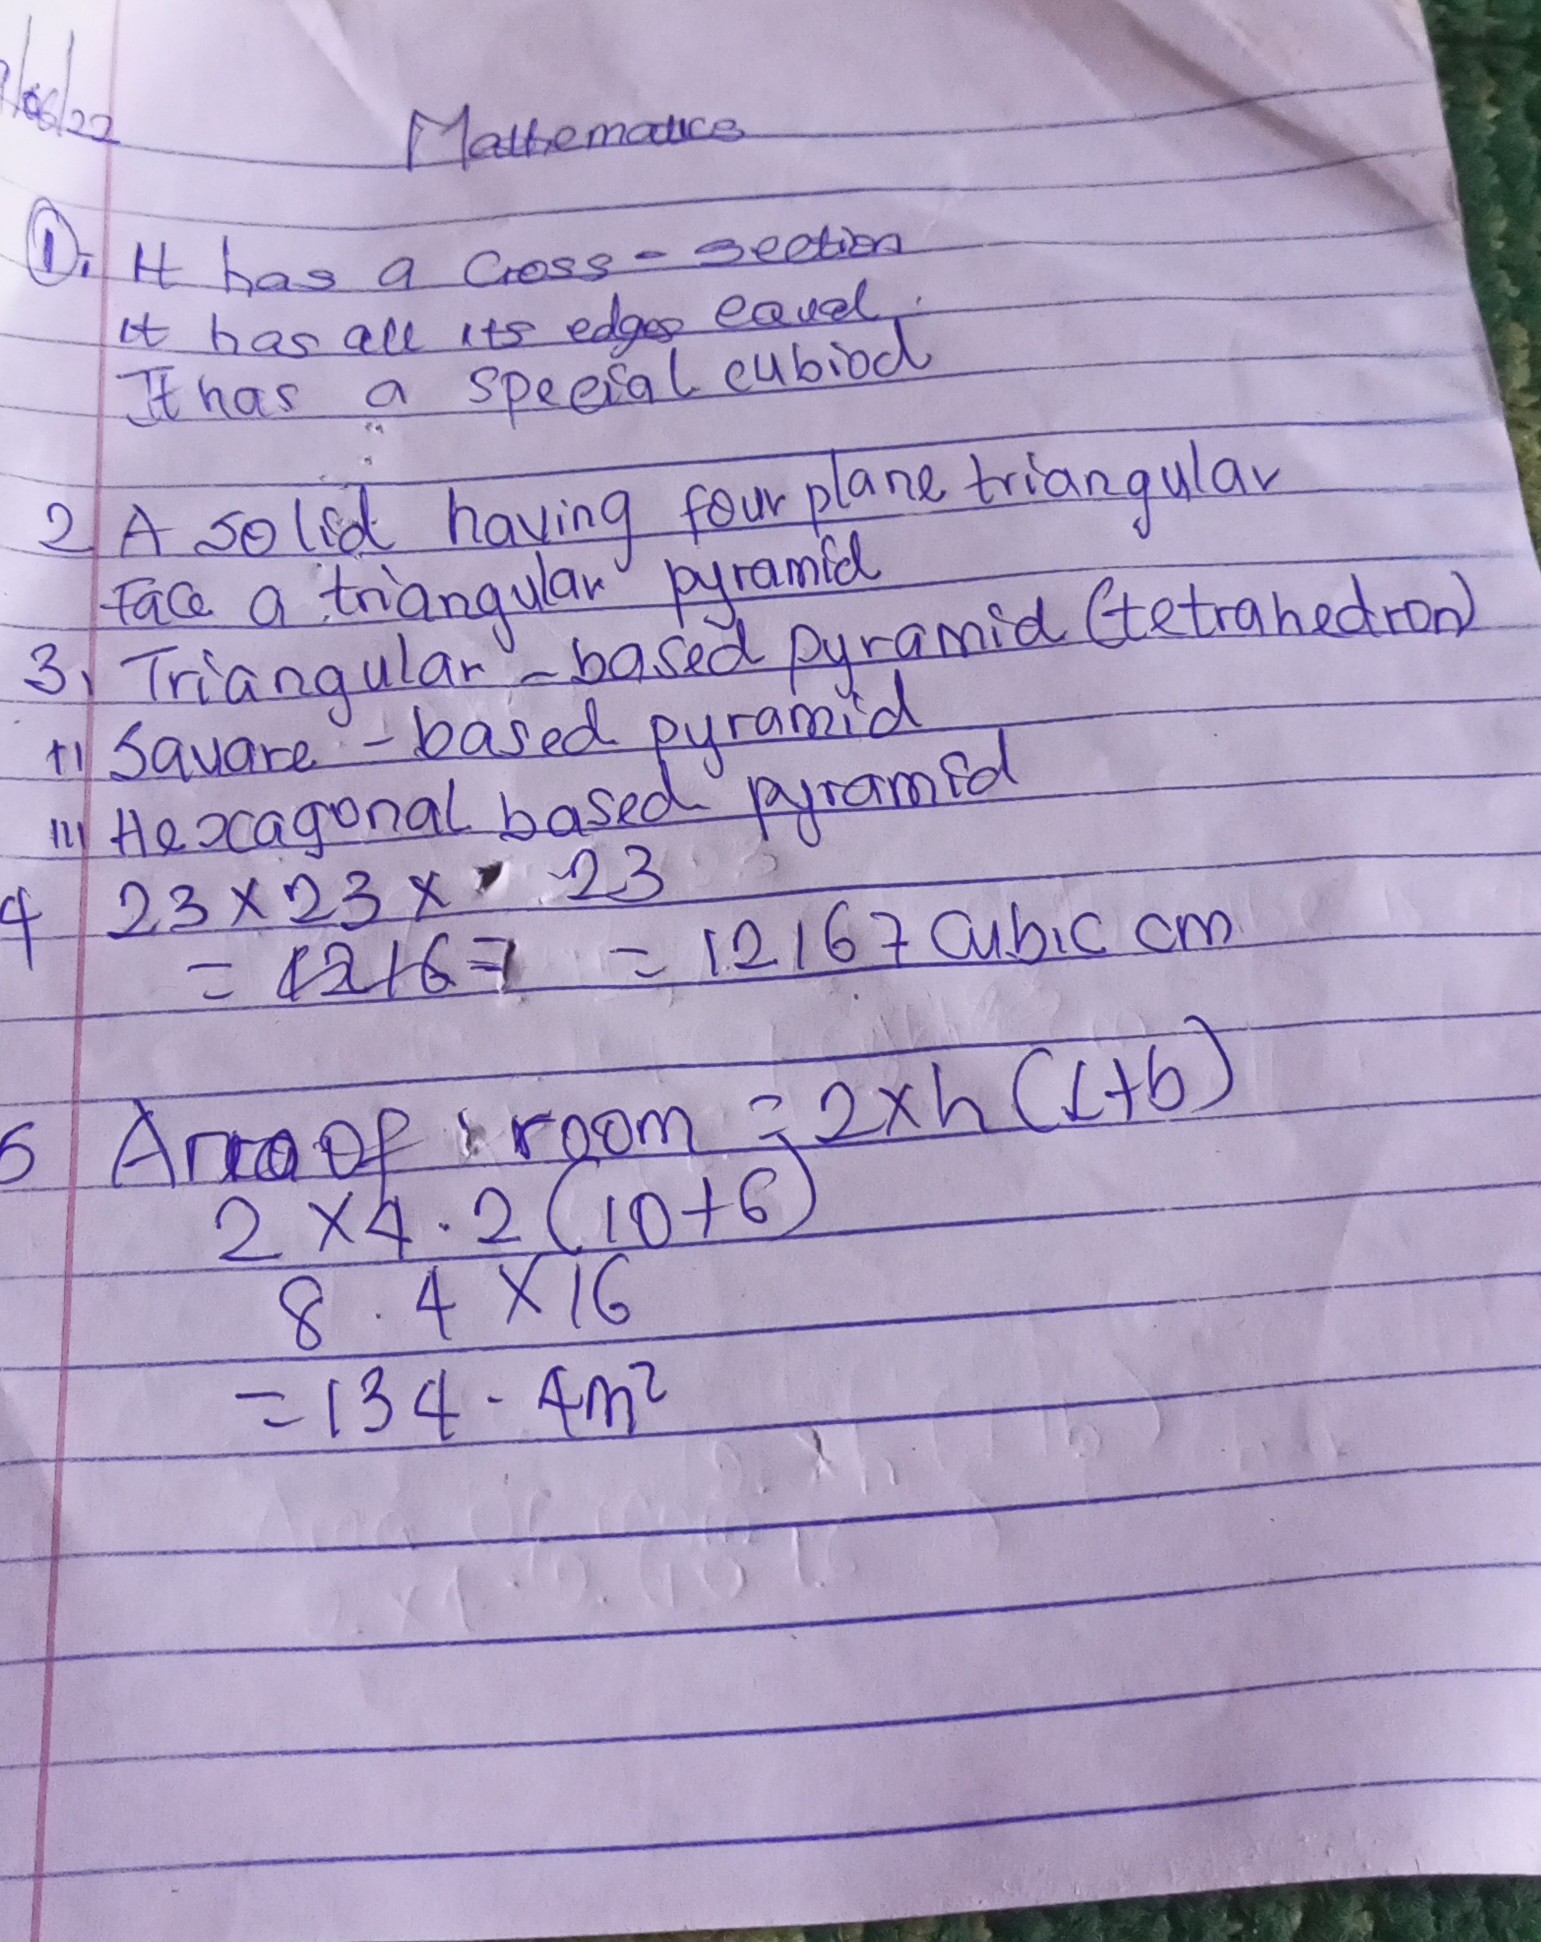 /06/22
Mathematics
1. It has a Cross-section
It has all its edges equal.
It has a special cubiod
2 A solid having four plane triangular
face a triangular pyramid
3, Triangular-based pyramid (tetrahedron)
ii) Square-based pyramid
iii) Hexagonal based pyramid
4 23 x 23 x 23
= 12167 = 12167 Cubic cm
5 Area Of room = 2xh(l+b)
2 x 4.2 (10+6)
8.4 x 16
= 134.4m²